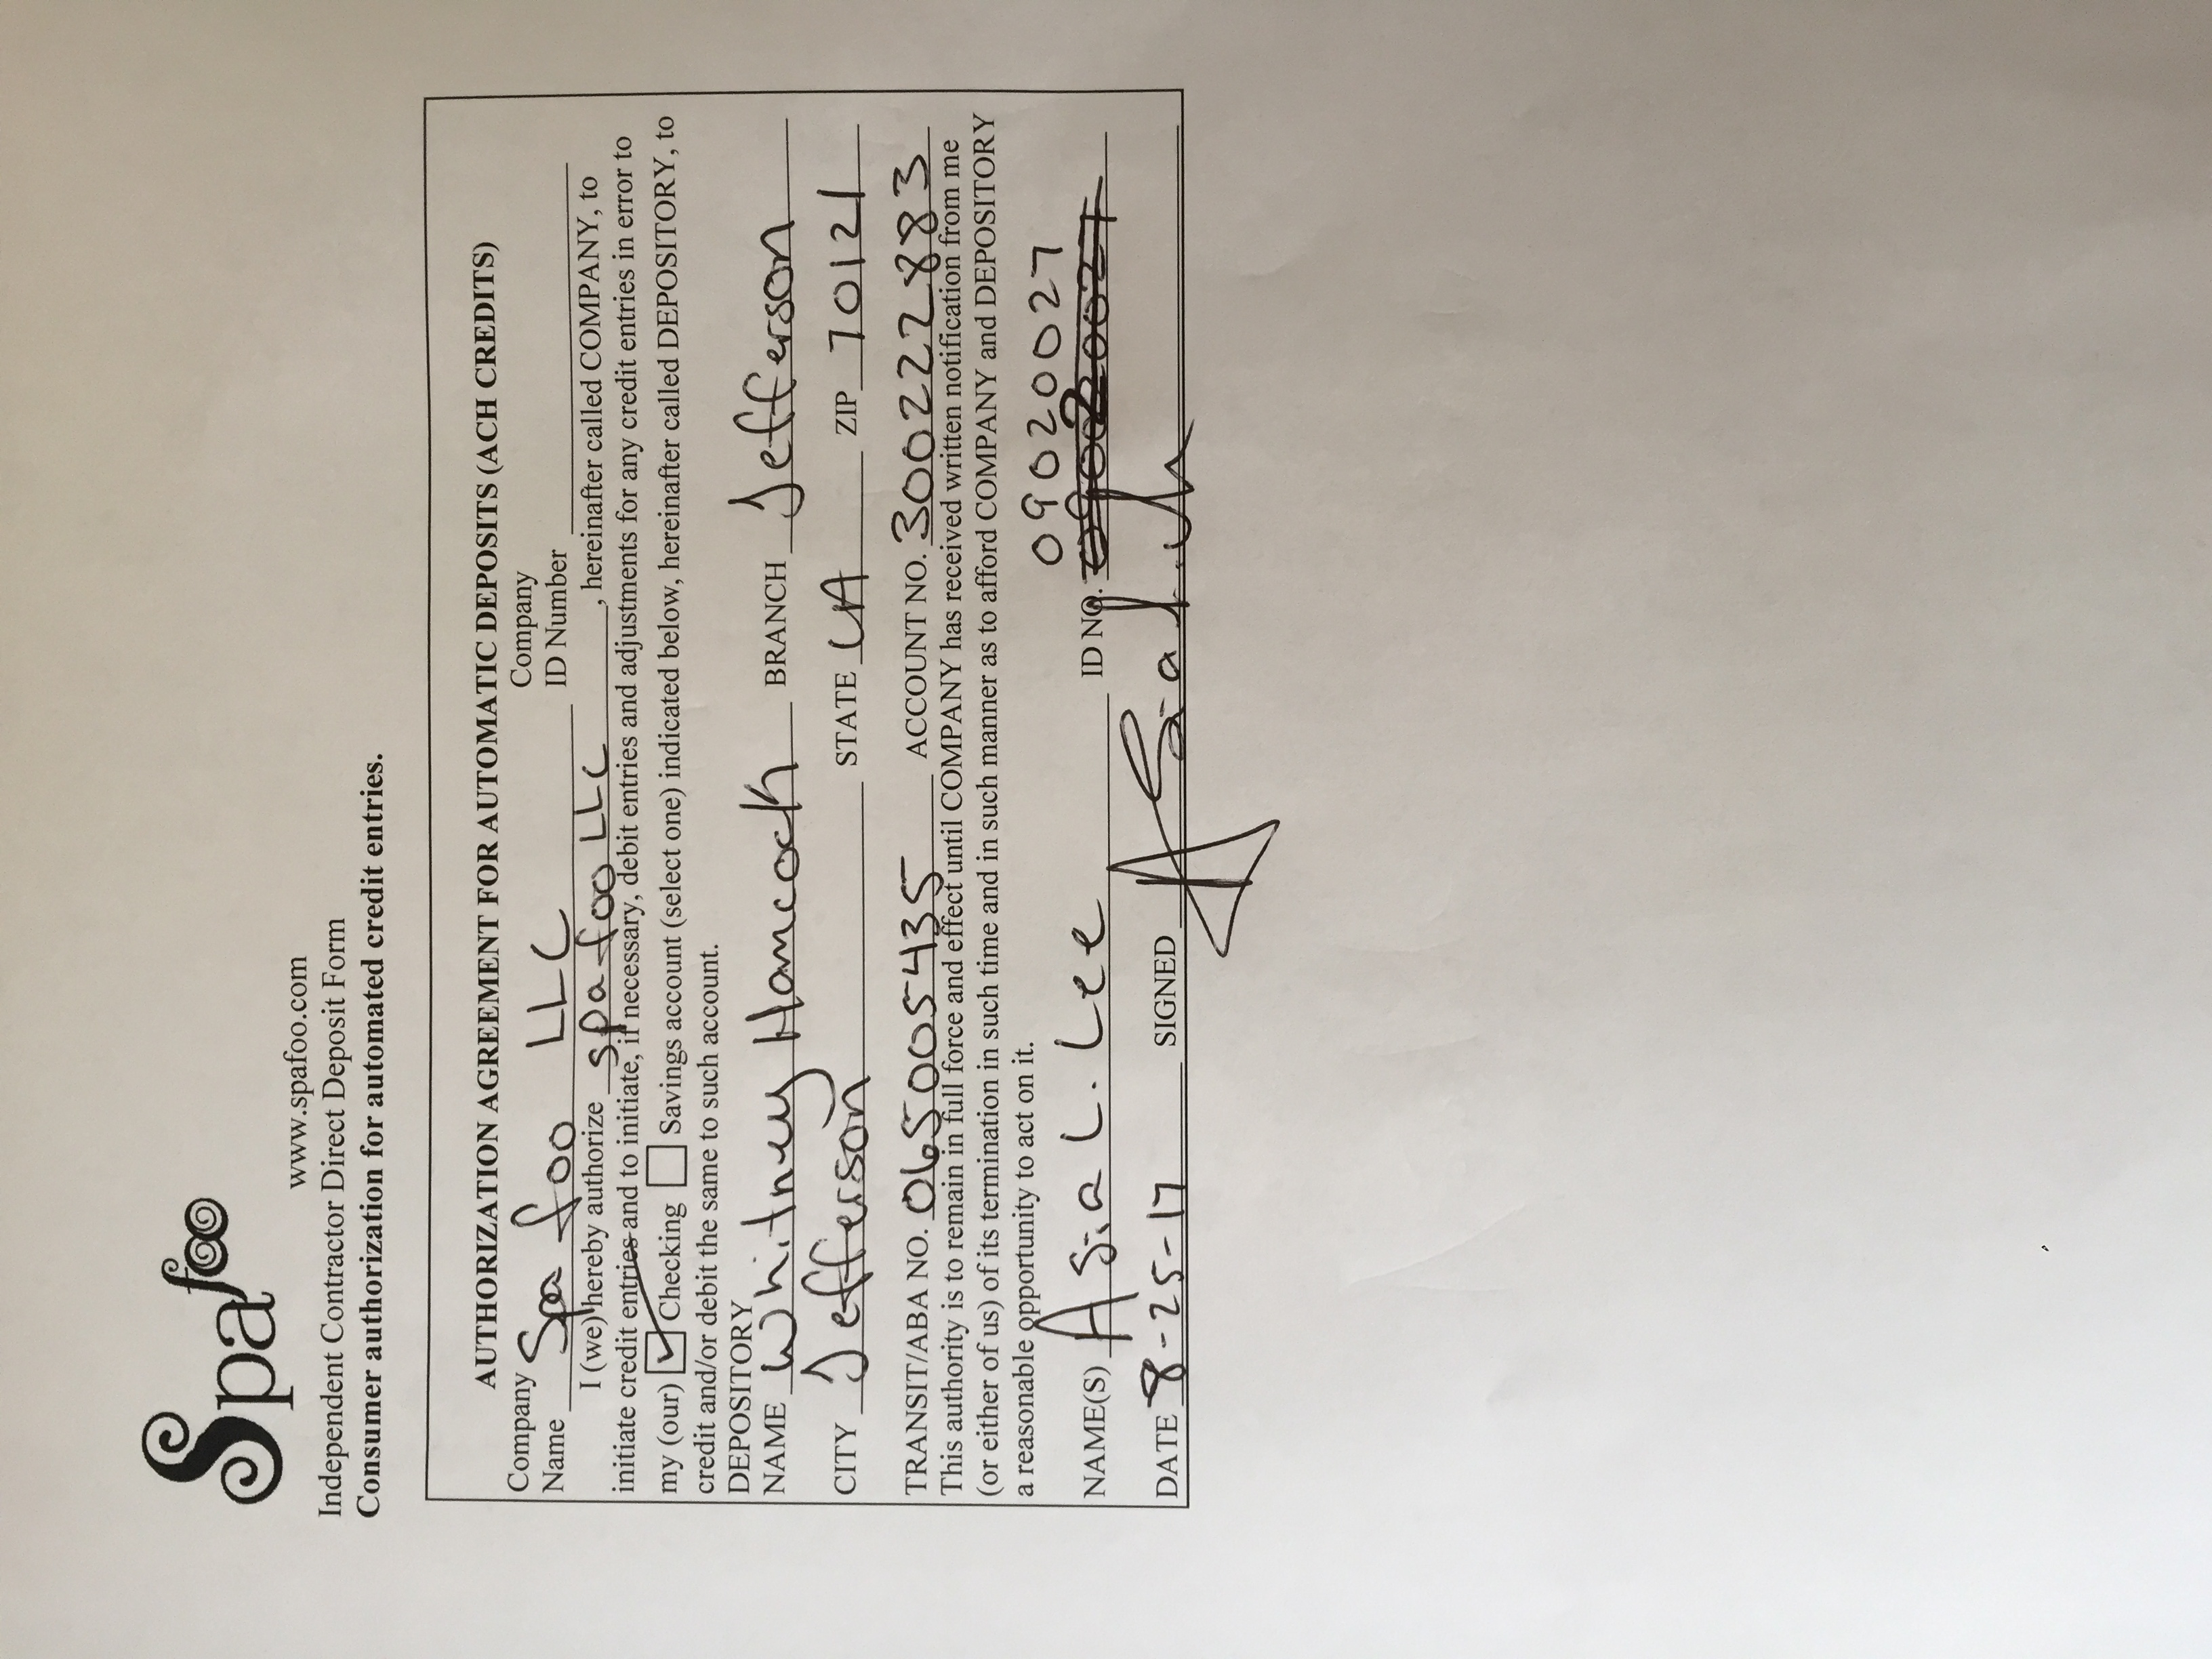 Spa foo
www.spafoo.com
Independent Contractor Direct Deposit Form
Consumer authorization for automated credit entries.
AUTHORIZATION AGREEMENT FOR AUTOMATIC DEPOSITS (ACH CREDITS)
Company Name Spa foo LLC Company ID Number
I (we) hereby authorize spa foo LLC, hereinafter called COMPANY, to
initiate credit entries and to initiate, if necessary, debit entries and adjustments for any credit entries in error to
my (our) ✓ Checking Savings account (select one) indicated below, hereinafter called DEPOSITORY, to
credit and/or debit the same to such account.
DEPOSITORY
NAME Whitney Hancock BRANCH Jefferson
CITY Jefferson STATE LA ZIP 70121
TRANSIT/ABA NO. 065005435 ACCOUNT NO. 300222883
This authority is to remain in full force and effect until COMPANY has received written notification from me
(or either of us) of its termination in such time and in such manner as to afford COMPANY and DEPOSITORY
a reasonable opportunity to act on it.
09020027
NAME(S) Asia L. Lee ID NO.
DATE 8-25-17 SIGNED Asia L.